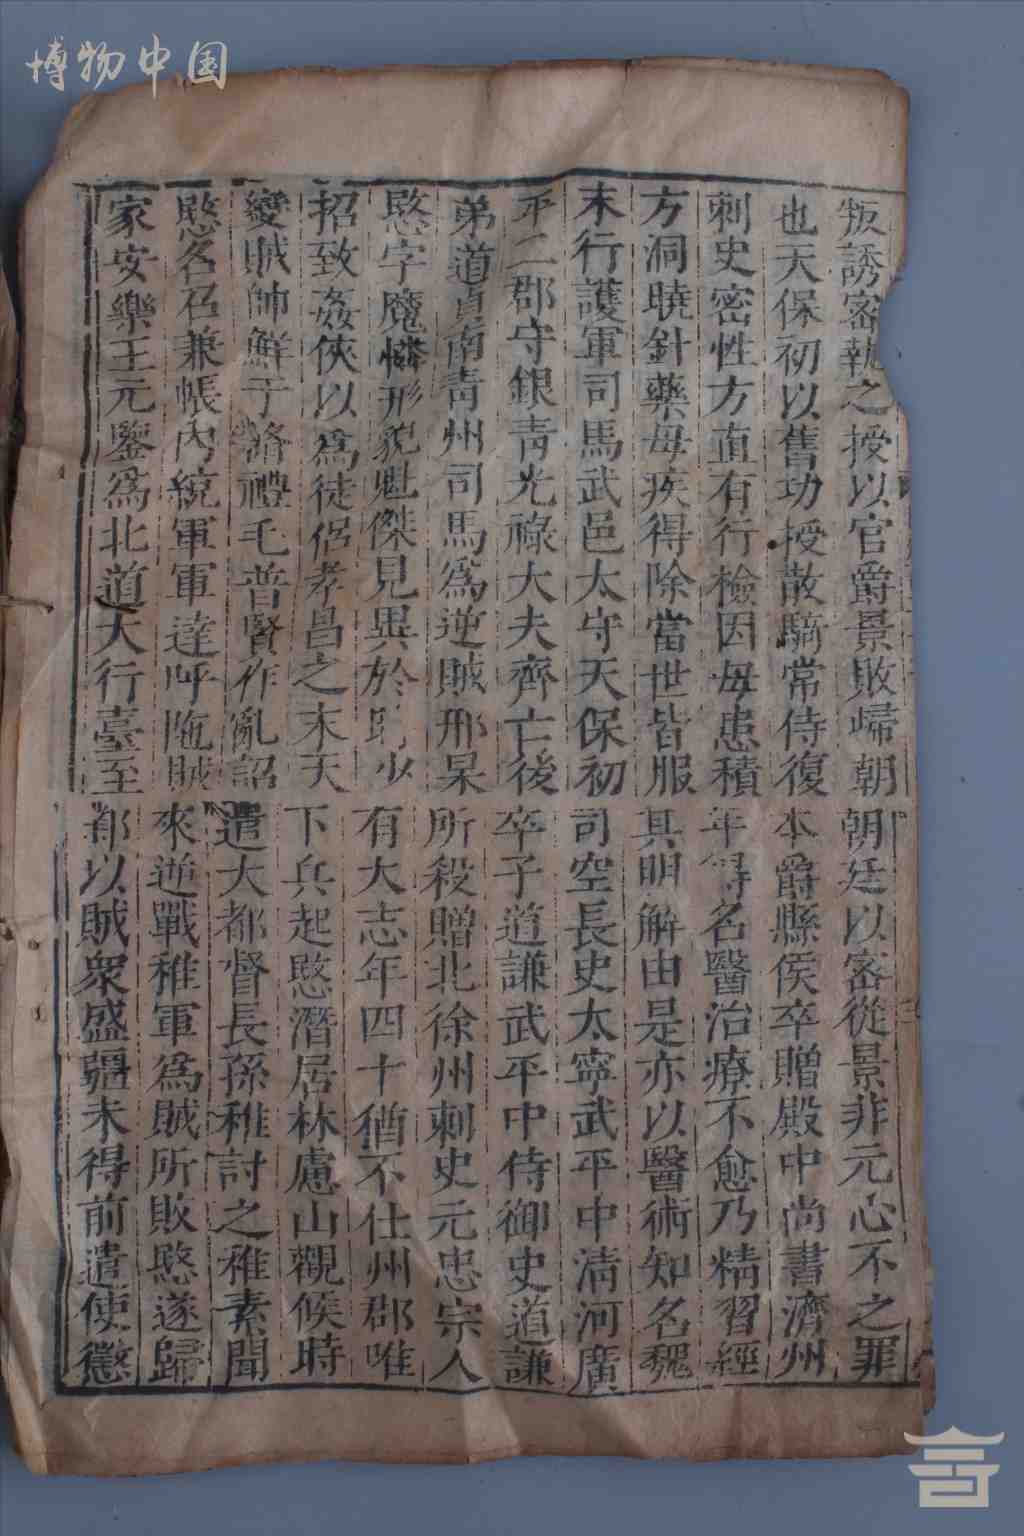 博物中国
叛誘密執之授以官爵景敗歸朝朝廷以密從景非元心不之罪
也天保初以舊功授散騎常侍復本爵縣侯卒贈殿中尚書濟州
刺史密性方直有行檢因母患積年得名醫治療不愈乃精習經
方洞曉針藥母疾得除當世皆服其明解由是亦以醫術知名魏
末行護軍司馬武邑太守天保初司空長史太寧武平中清河廣
平二郡守銀青光祿大夫齊亡後卒子道謙武平中侍御史道謙
弟道貞南青州司馬為逆賊邢杲所殺贈北徐州刺史元忠宗人
愍字魔憐形貌魁傑見異於時少有大志年四十猶不仕州郡唯
招致姦俠以為徒侶孝昌之末天下兵起愍潛居林慮山觀候時
變賊帥鮮于脩禮毛普賢作亂詔遣大都督長孫稚討之稚素聞
愍名召兼帳內統軍軍達呼陁賊來逆戰稚軍為賊所敗愍遂歸
家安樂王元鑒為北道大行臺至鄴以賊衆盛疆未得前遣使徵